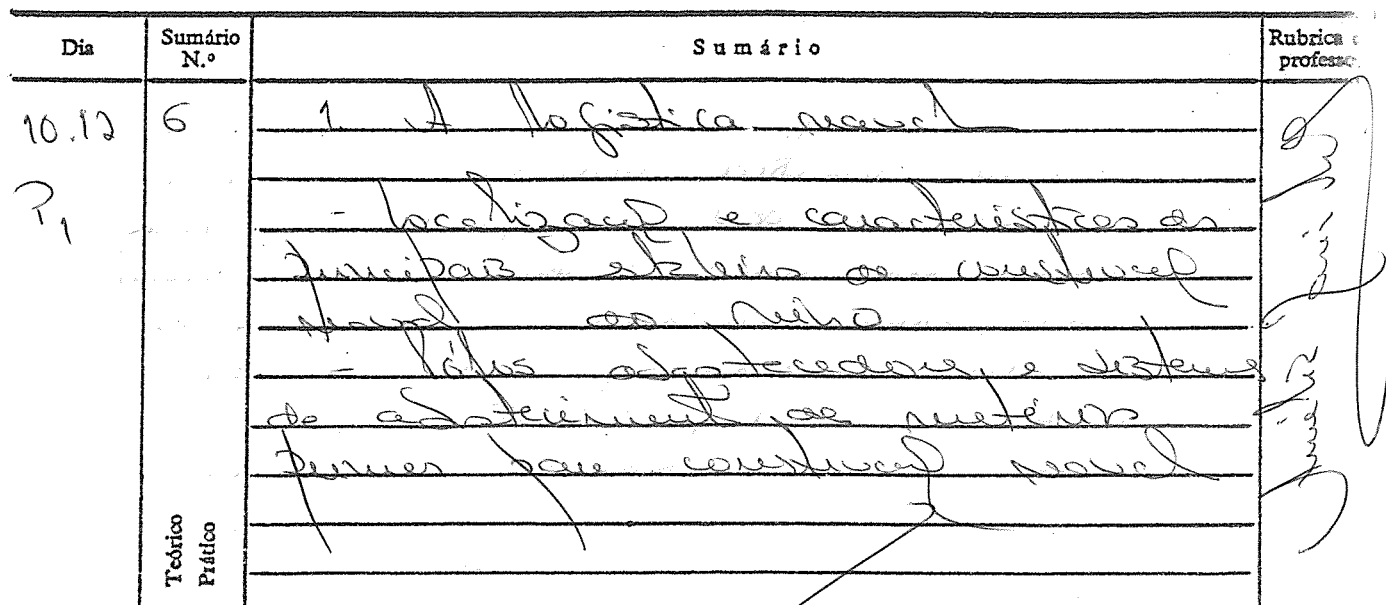 Dia Sumário N.º Sumário Rubrica professo
10.12 6 1. A logística naval
P1
- Localização e características dos
principais estaleiros de construção
naval do reino
- Pólos abastecedores e sistemas
de abastecimento de matérias
primas para construção naval
Teórico
Prático